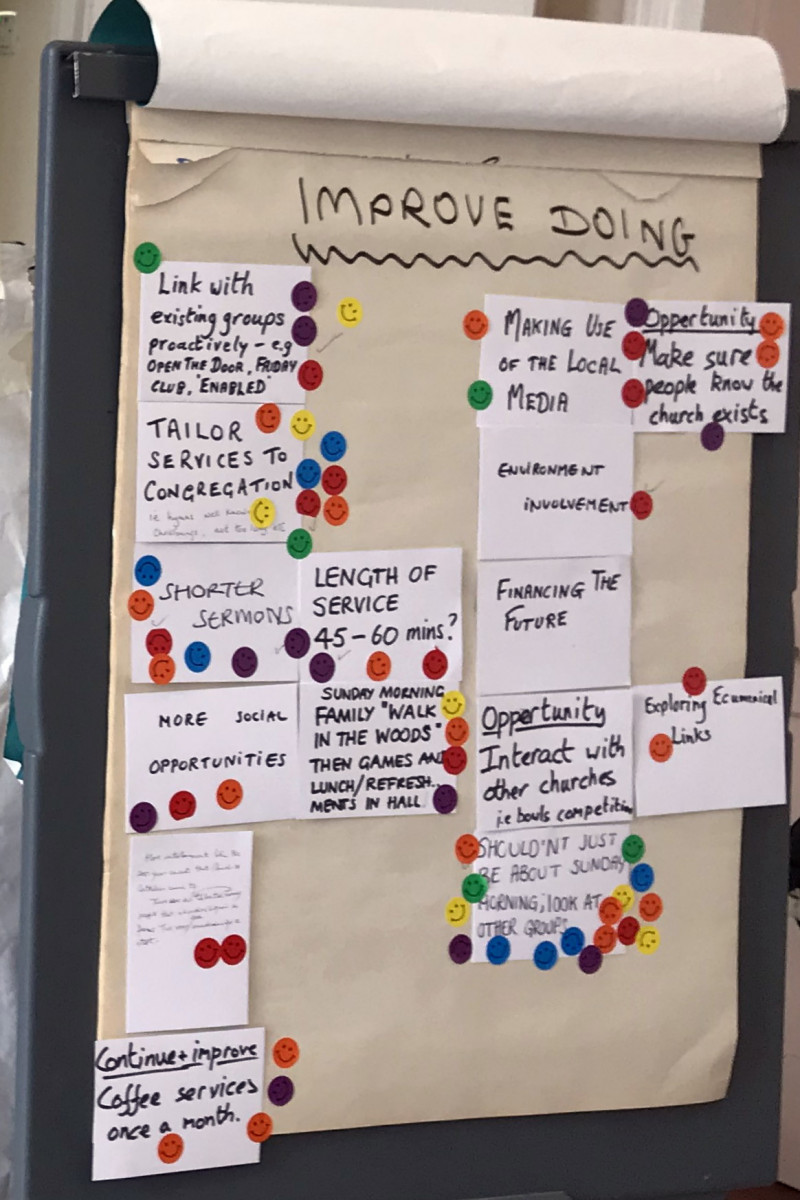 IMPROVE DOING
Link with
existing groups
proactively - e.g
OPEN THE DOOR, FRIDAY
CLUB, 'ENABLED'
TAILOR
SERVICES TO
CONGREGATION
i.e. hymns well
SHORTER
SERMONS
LENGTH OF
SERVICE
45-60 mins?
MORE SOCIAL
OPPORTUNITIES
SUNDAY MORNING
FAMILY "WALK
IN THE WOODS"
THEN GAMES AND
LUNCH/REFRESH..
MENTS IN HALL
Continue + improve
Coffee services
once a month.
MAKING USE
OF THE LOCAL
MEDIA
Opportunity
Make sure
people know the
church exists
ENVIRONMENT
INVOLVEMENT
FINANCING THE
FUTURE
Opportunity
Interact with
other churches
i.e bowls competition
Exploring Ecumenical
Links
SHOULD'NT JUST
BE ABOUT SUNDAY
MORNING, LOOK AT
OTHER GROUPS